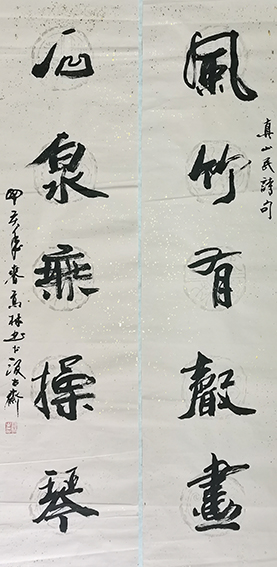 真山民詩句
風竹有聲畫
石泉無操琴
年春高林书于汲古斋